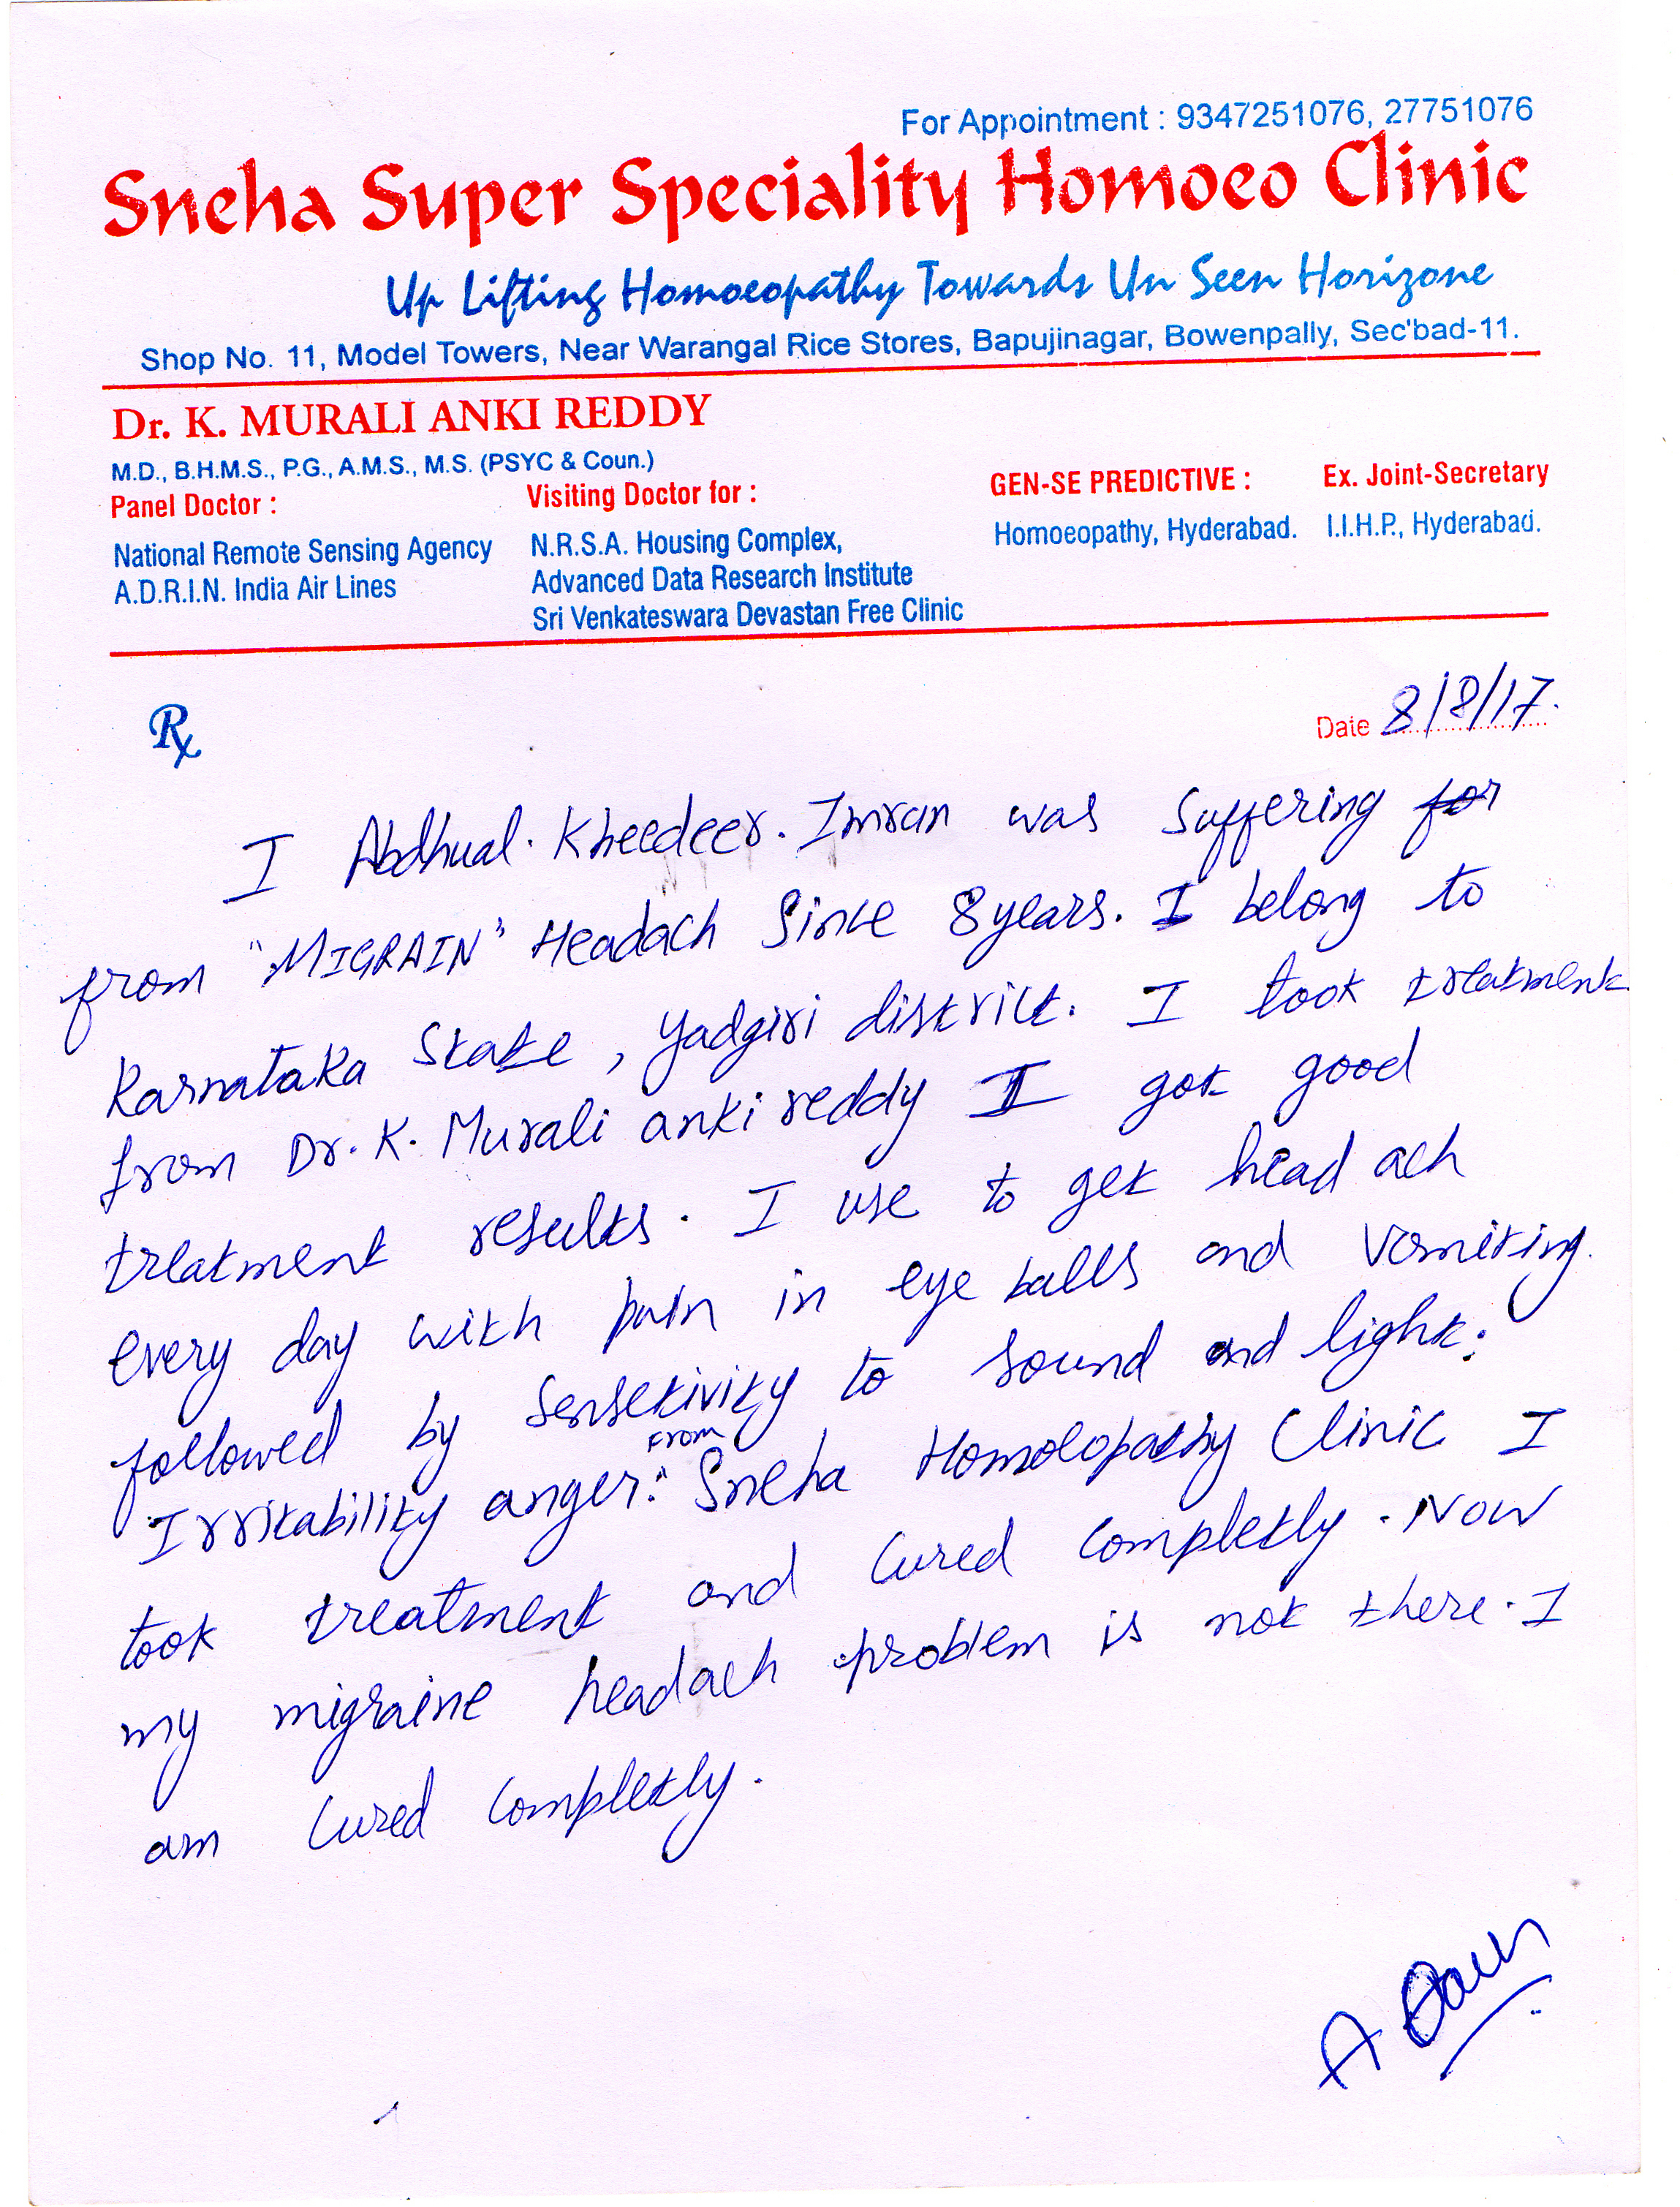 For Appointment : 9347251076, 27751076
Sneha Super Speciality Homoeo Clinic
Up Lifting Homoeopathy Towards Un Seen Horizone
Shop No. 11, Model Towers, Near Warangal Rice Stores, Bapujinagar, Bowenpally, Sec'bad-11.
Dr. K. MURALI ANKI REDDY
M.D., B.H.M.S., P.G., A.M.S., M.S. (PSYC & Coun.)
Panel Doctor :
National Remote Sensing Agency
A.D.R.I.N. India Air Lines
Visiting Doctor for :
N.R.S.A. Housing Complex,
Advanced Data Research Institute
Sri Venkateswara Devastan Free Clinic
GEN-SE PREDICTIVE :
Homoeopathy, Hyderabad.
Ex. Joint-Secretary
I.I.H.P., Hyderabad.
Rx
Date 8/8/17.
I Abdhual. Kheedeer. Imran was suffering for
from "MIGRAIN" Headach Since 8 years. I belong to
Karnataka State, Yadgiri district. I took treatment
from Dr. K. Murali anki reddy I got good
treatment results. I use to get head ach
every day with pain in eye balls and vomiting.
followed by sensetivity to sound and light.
Irritability anger. From Sneha Homoeopathy Clinic I
took treatment and cured completly. Now
my migraine headach problem is not there. I
am cured completly.